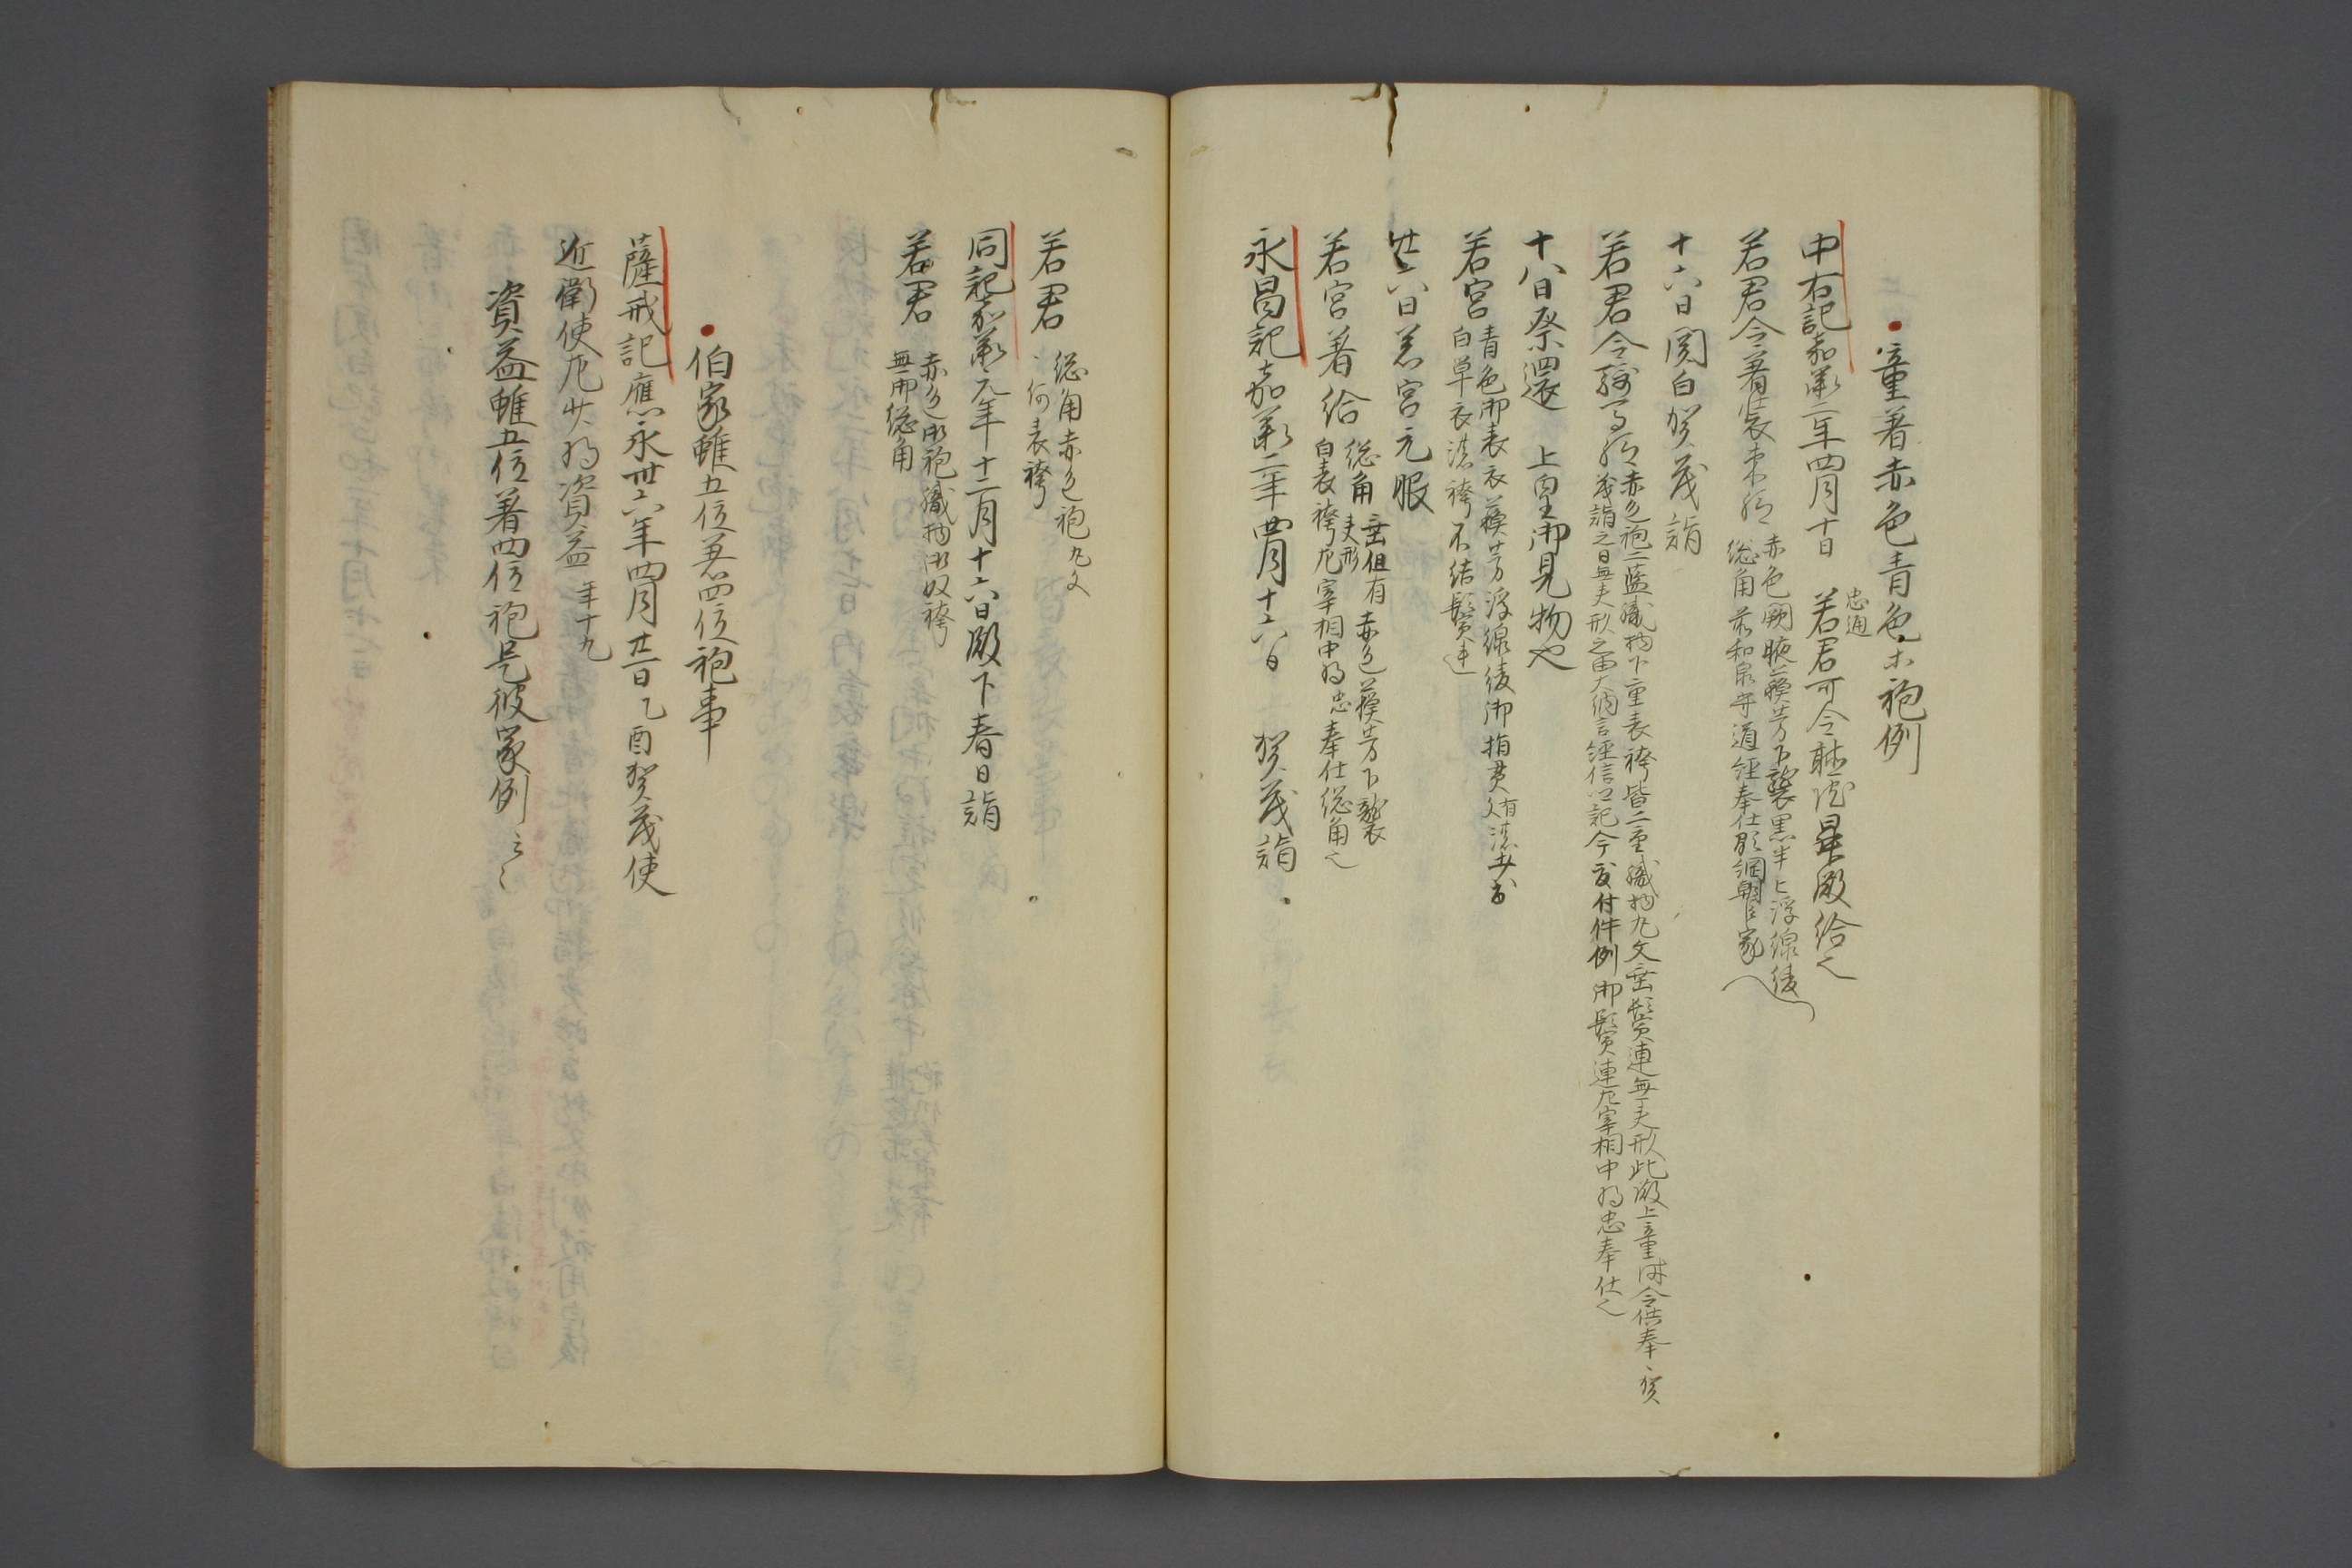 童著赤色青色等袍例
中右記嘉承二年四月十日 若君可令聴昇殿給之
忠通
若君令著装束給
赤色闕腋蘇芳下襲黒半臂浮線綾
総角前和泉守道経奉仕
十六日関白賀茂詣
若君令騎馬給
赤色袍二藍織物下重表袴皆二重織物丸文垂鬢連無夫形此殿上童時令供奉賀
茂詣之日無夫形之由大納言経信卿記今度付件例御鬢連左宰相中将忠奉仕之
十八日祭還 上皇御見物也
若宮
青色御表衣蘇芳浮線綾御指貫
白単衣 不結鬢連
廿六日若宮元服
若宮著給
総角 垂但有夫形 赤色蘇芳下襲
白表袴左宰相中将忠奉仕総角之
永昌記嘉承二年四月十六日 賀茂詣
若君
総角赤色袍丸文
何表袴
同記嘉承元年十二月十六日殿下春日詣
若君
赤色御袍織物御奴袴
無御総角
伯家雖五位著四位袍事
薩戒記應永卅六年四月廿二日乙酉賀茂使
近衛使左少将資益 年十九
資益雖五位著四位袍是彼家例云々